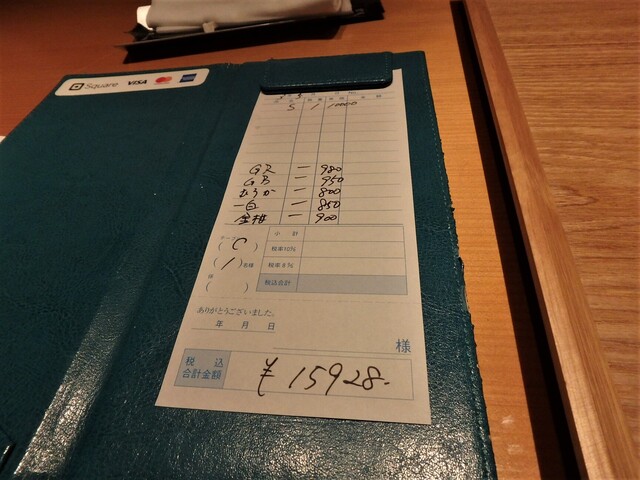 Square VISA
S / 10000
GR 一 980
GB 一 950
むろか 一 800
一白 一 850
金柑 一 900
小計
(C)
税率10%
(1)名様
税率8%
係
( )
税込合計
ありがとうございました。
年 月 日
様
税込
合計金額
¥15928.